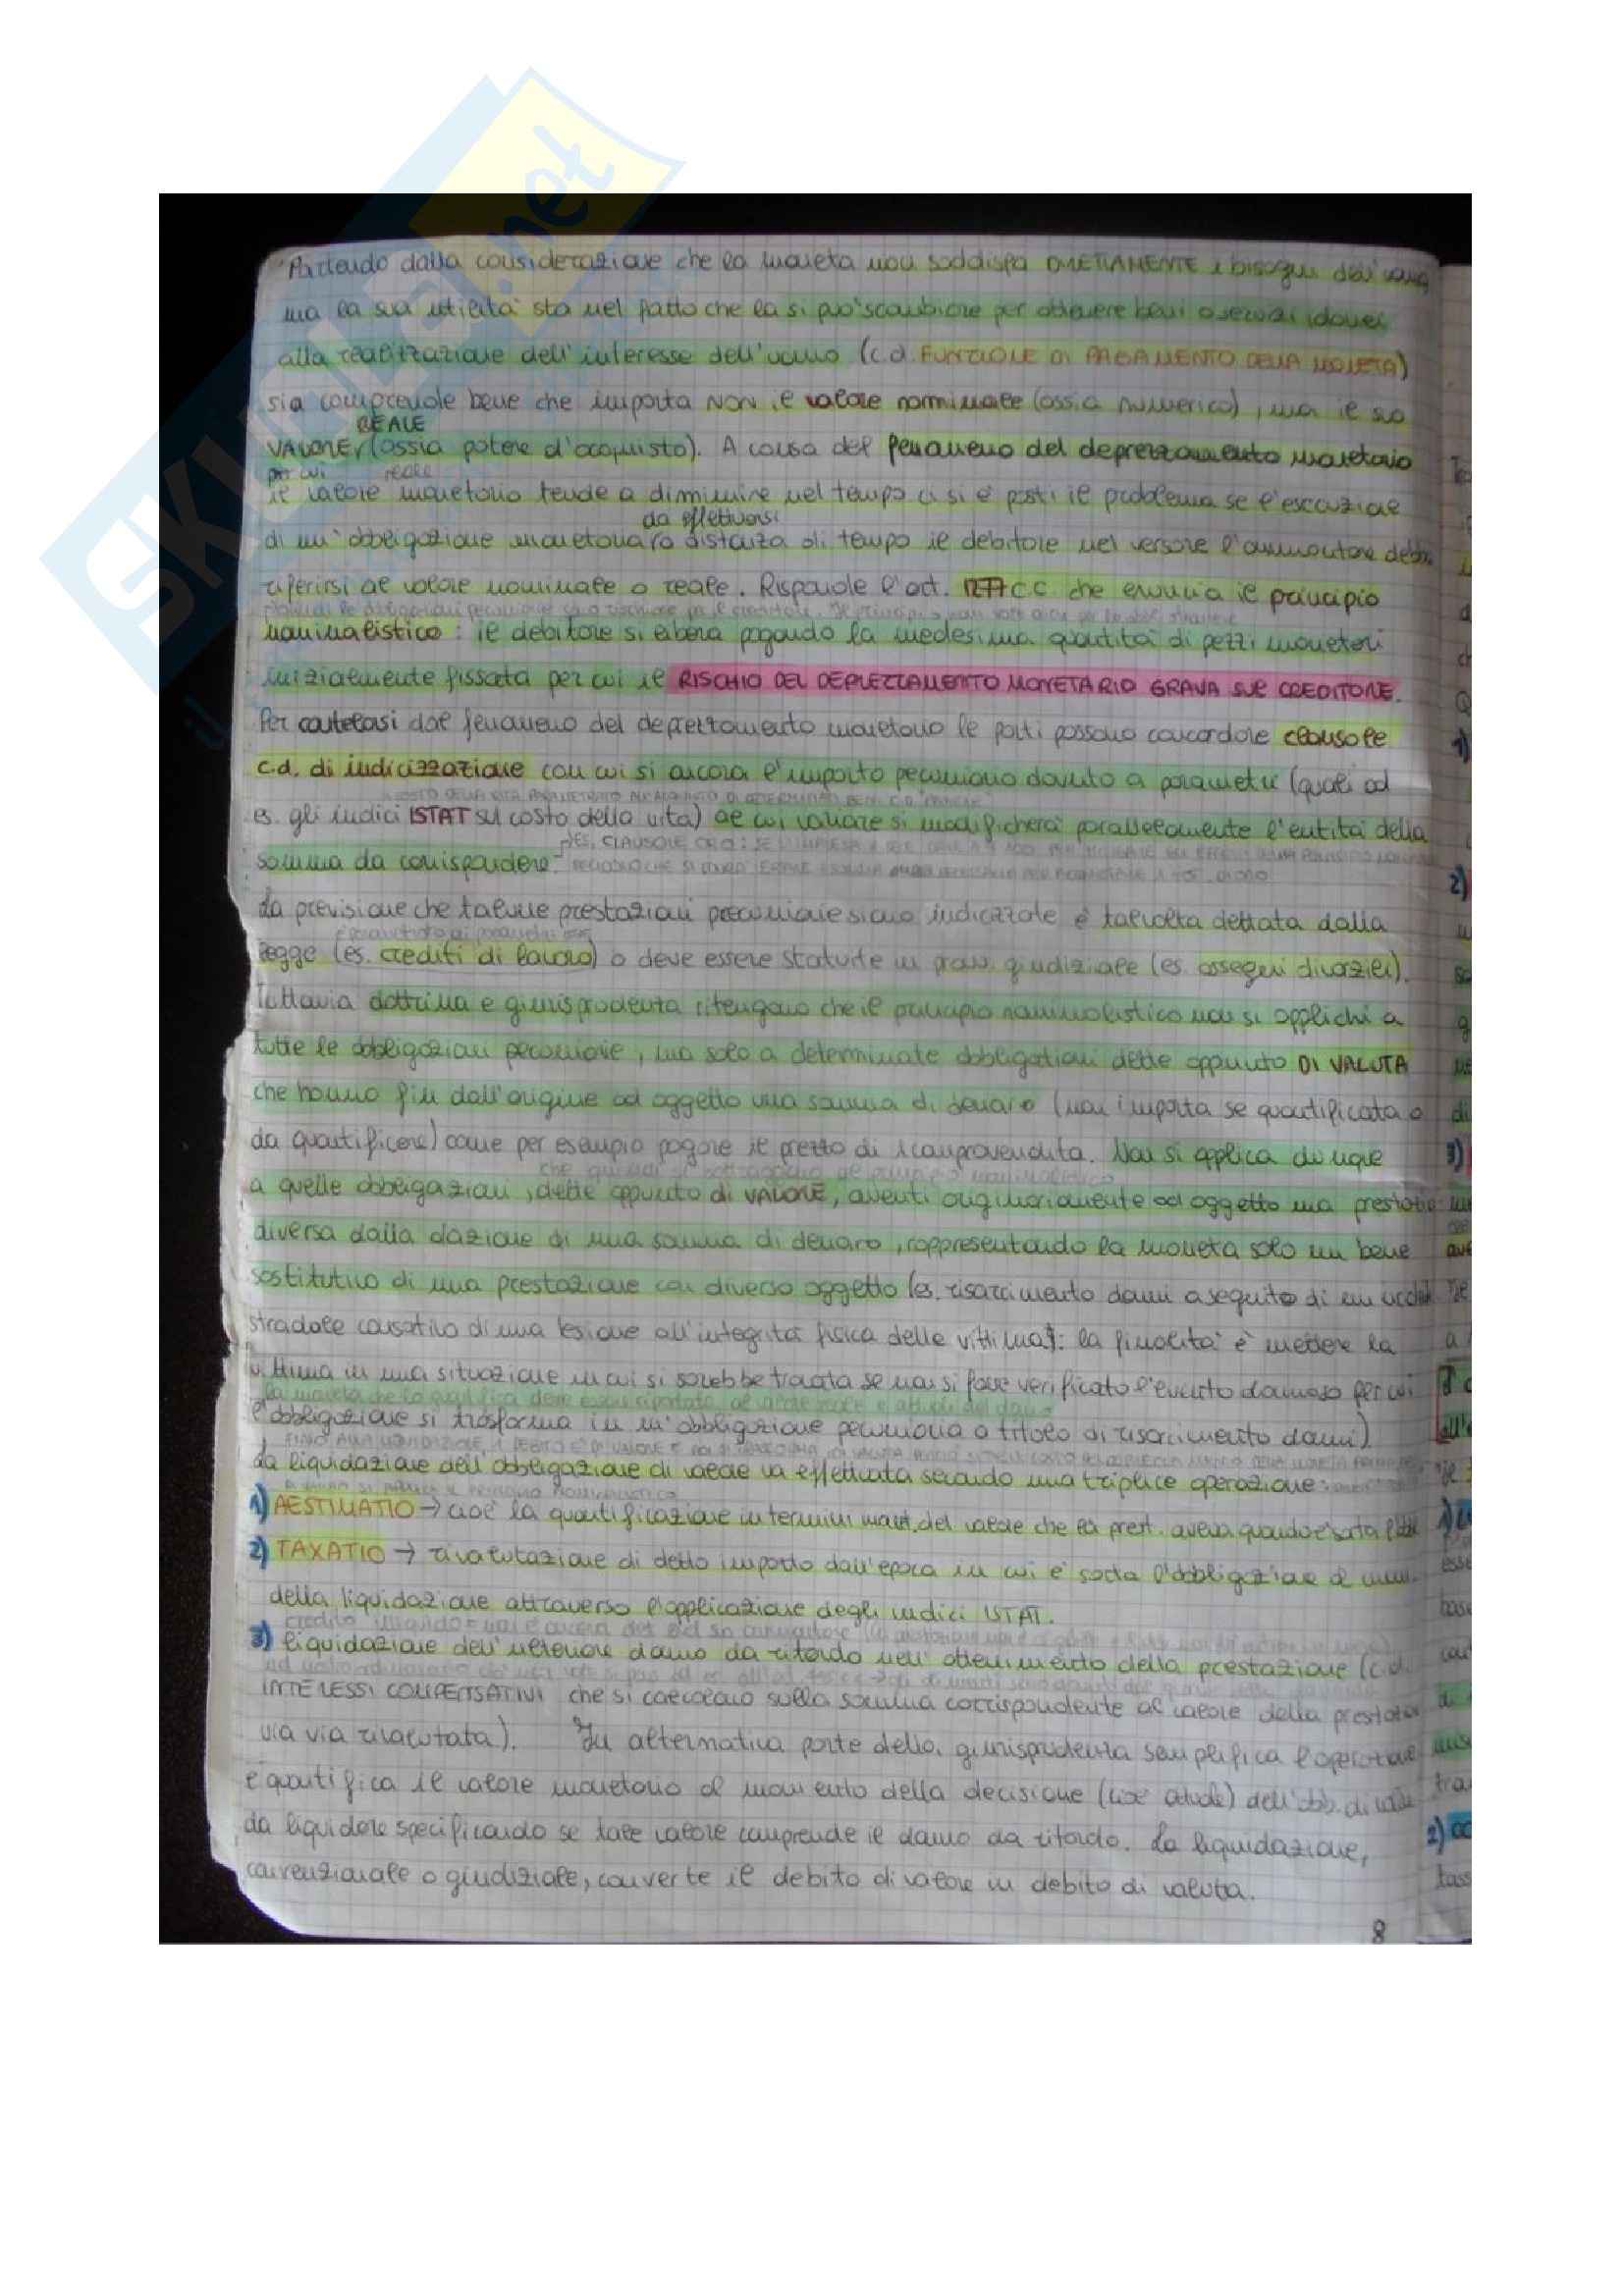 SKUOLA.net
Partendo dalla considerazione che la moneta non soddisfa DIRETTAMENTE i bisogni dell'uomo
ma la sua utilità sta nel fatto che la si può scambiare per ottenere beni o servizi idonei
alla realizzazione dell'interesse dell'uomo (c.d. FUNZIONE DI PAGAMENTO DELLA MONETA)
sia comprende bene che importa NON il valore nomminale (ossia numerico), ma il suo
REALE
VALORE (ossia potere d'acquisto). A causa del fenomeno del deprezzamento monetario
per cui reale
il valore monetario tende a diminuire nel tempo ci si è posti il problema se l'escuzione
da effettuarsi
di un'obbligazione monetaria a distanza di tempo il debitore nel versare l'ammontare debba
riferirsi al valore nominale o reale. Risponde l'art. 1277 C.C. che enuncia il principio
nominalistico: il debitore si libera pagando la medesima quantità di pezzi monetari
inizialmente fissata per cui il RISCHIO DEL DEPREZZAMENTO MONETARIO GRAVA SUL CREDITORE.
Per cautelasi dal fenomeno del deprezzamento monetario le parti possono concordare clausole
c.d. di indicizzazione con cui si ancora l'importo pecuniario dovuto a parametri (quali ad
es. gli indici ISTAT sul costo della vita) al cui variare si modificherà parallelamente l'entità della
ES. CLAUSOLE ORO: SE
somma da corrispondere.
La previsione che talune prestazioni pecuniarie siano indicizzate è talvolta dettata dalla
legge (es. crediti di lavoro) o deve essere statuite in provv. giudiziale (es. assegni divorzili).
Tuttavia dottrina e giurisprudenza ritengono che il principio nominalistico non si applichi a
tutte le obbligazioni pecuniarie, ma solo a determinate obbligazioni dette appunto DI VALUTA
che hanno fin dall'origine ad oggetto una somma di denaro (non importa se quantificata o
da quantificare) come per esempio pagare il prezzo di 1 compravendita. Non si applica dunque
che quindi si sottraggono al principio nominalistico
a quelle obbligazioni, dette appunto di VALORE, aventi originariamente ad oggetto una prestazio
diversa dalla dazione di una somma di denaro, rappresentando la moneta solo un bene
sostitutivo di una prestazione con diverso oggetto (es. risarcimento danni a seguito di un
stradale causativo di una lesione all'integrità fisica della vittima): la finalità è mettere la
vittima in una situazione in cui si sarebbe trovata se non si fosse verificato l'evento dannoso per cui
l'obbligazione si trasforma in un'obbligazione pecuniaria a titolo di risarcimento danni)
La liquidazione dell'obbligazione di valore va effettuata secondo una triplice operazione:
1) AESTIMATIO → cioè la quantificazione in termini monet. del valore che la prest. aveva quando è sorta l'obbl
2) TAXATIO → rivalutazione di detto importo dall'epoca in cui è sorta l'obbligazione al mom.
della liquidazione attraverso l'applicazione degli indici ISTAT.
3) liquidazione dell'ulteriore danno da ritardo nell'ottenimento della prestazione (c.d.
INTERESSI COMPENSATIVI che si calcolano sulla somma corrispondente al valore della prestazion
via via rivalutata). In alternativa parte della giurisprudenza semplifica l'operazione
e quantifica il valore monetario al momento della decisione (cioè attuale) dell'obb. di valore
da liquidare specificando se tale valore comprende il danno da ritardo. La liquidazione,
convenzionale o giudiziale, converte il debito di valore in debito di valuta.
8